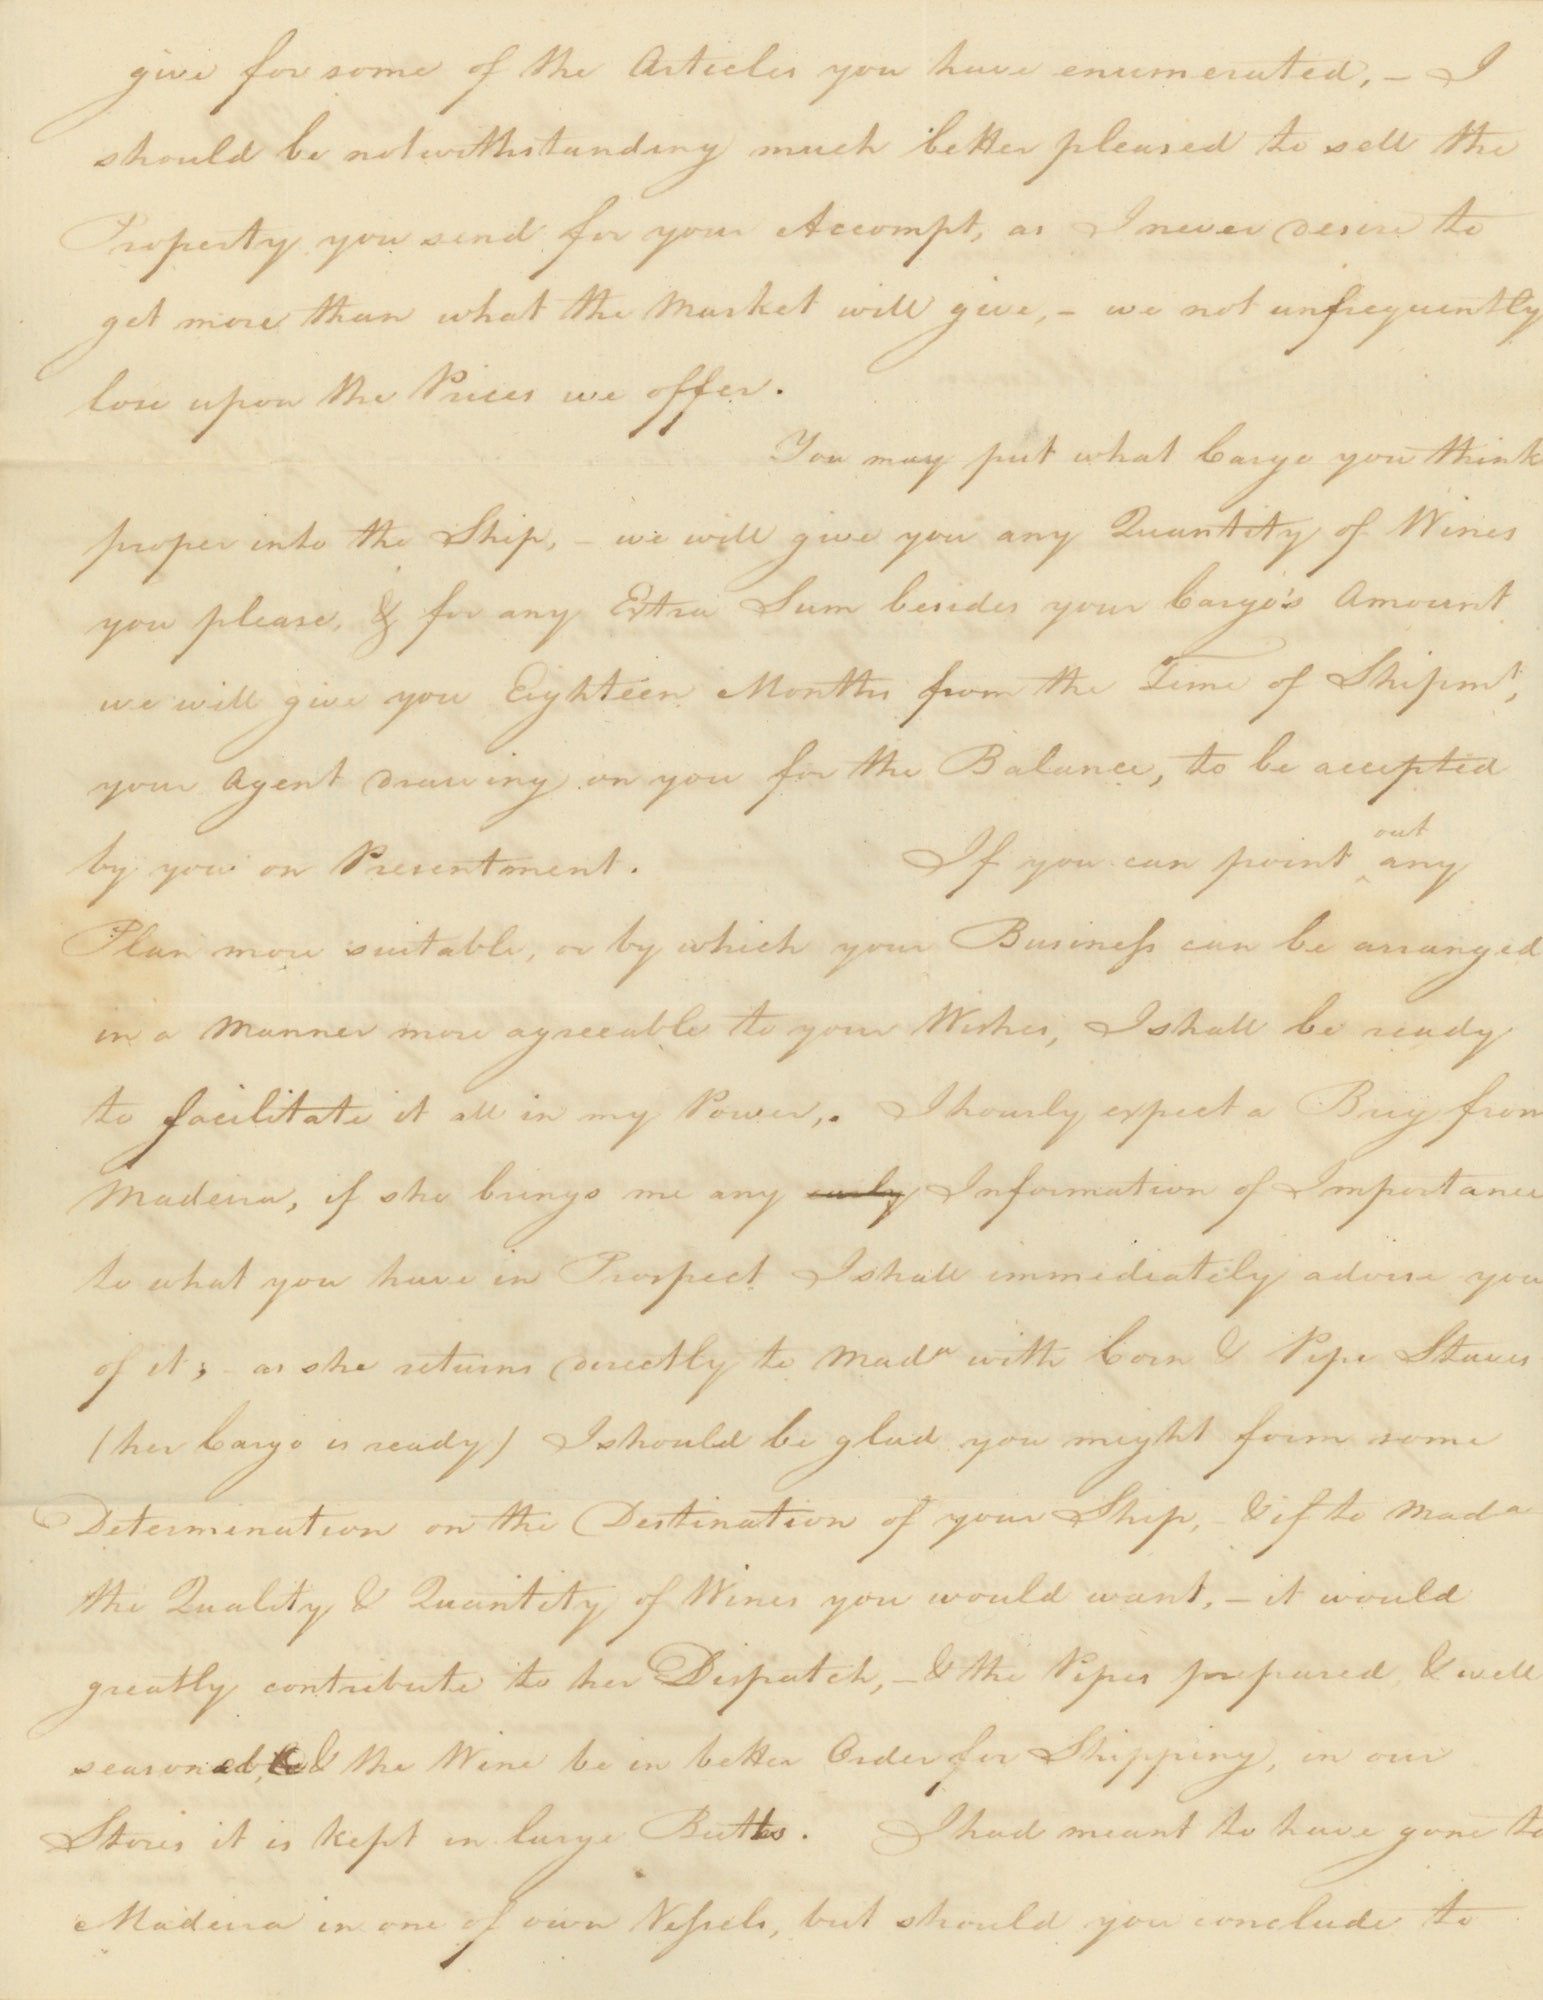 give for some of the Articles you have enumerated, – I
should be notwithstanding much better pleased to sell the
Property you send for your Accompt, as I never desire to
get more than what the Market will give, – we not unfrequently
lose upon the Prices we offer.
You may put what Cargo you think
proper into the Ship, – we will give you any Quantity of Wines
you please, & for any Extra Sum besides your Cargo's Amount
we will give you Eighteen Months from the Time of Shipmt,
your Agent drawing on you for the Balance, to be accepted
by you on Presentment. If you can point out any
Plan more suitable, or by which your Business can be arranged
in a Manner more agreeable to your Wishes, I shall be ready
to facilitate it all in my Power,. I hourly expect a Brig from
Madeira, if she brings me any early Information of Importance
to what you have in Prospect I shall immediately advise you
of it; – as she returns directly to Mada with Corn & Pipe Staves
(her Cargo is ready) I should be glad you might form some
Determination on the Destination of your Ship, – & if to Mada
the Quality & Quantity of Wines you would want, – it would
greatly contribute to her Dispatch, – & the Pipes prepared & well
seasoned, & the Wine be in better Order for Shipping, in our
Stores it is kept in large Butts. I had meant to have gone to
Madeira in one of own Vessels, but should you conclude to